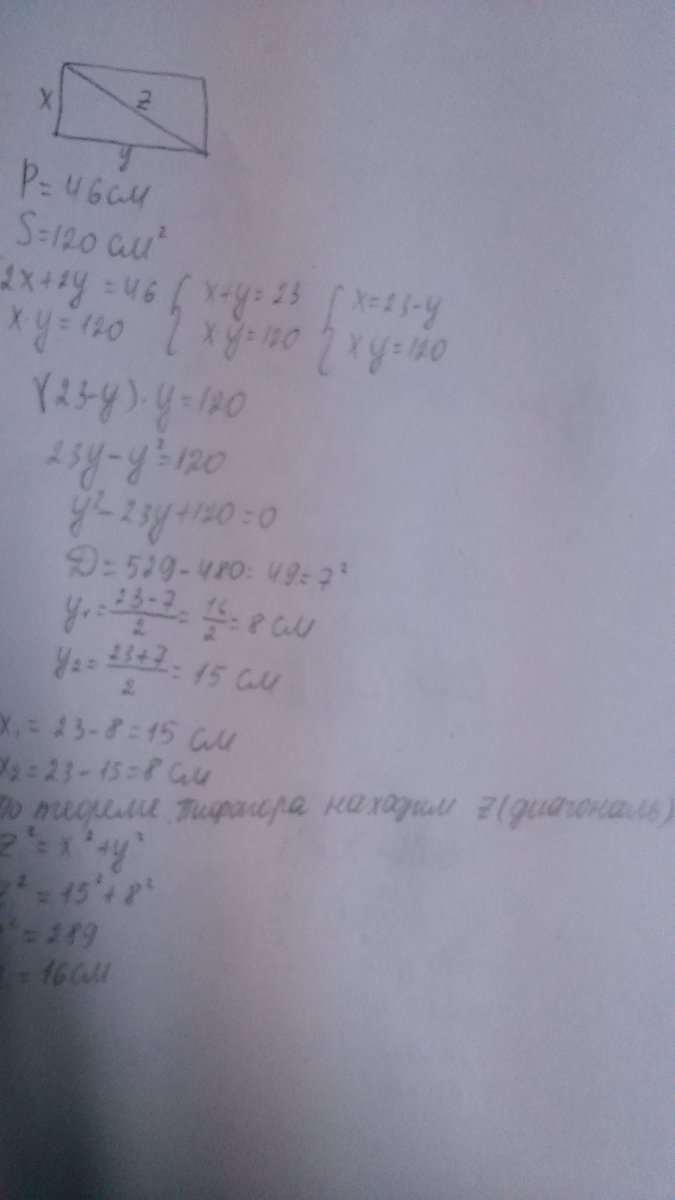 x
z
y
P = 46 см
S = 120 см²
2x + 2y = 46 { x + y = 23 { x = 23 - y
x · y = 120 { xy = 120 { xy = 120
(23 - y) · y = 120
23y - y² = 120
y² - 23y + 120 = 0
D = 529 - 480 = 49 = 7²
y₁ = (23 - 7)/2 = 16/2 = 8 см
y₂ = (23 + 7)/2 = 15 см
x₁ = 23 - 8 = 15 см
x₂ = 23 - 15 = 8 см
По теореме Пифагора находим z (диагональ)
z² = x² + y²
z² = 15² + 8²
z² = 289
z = 16 см